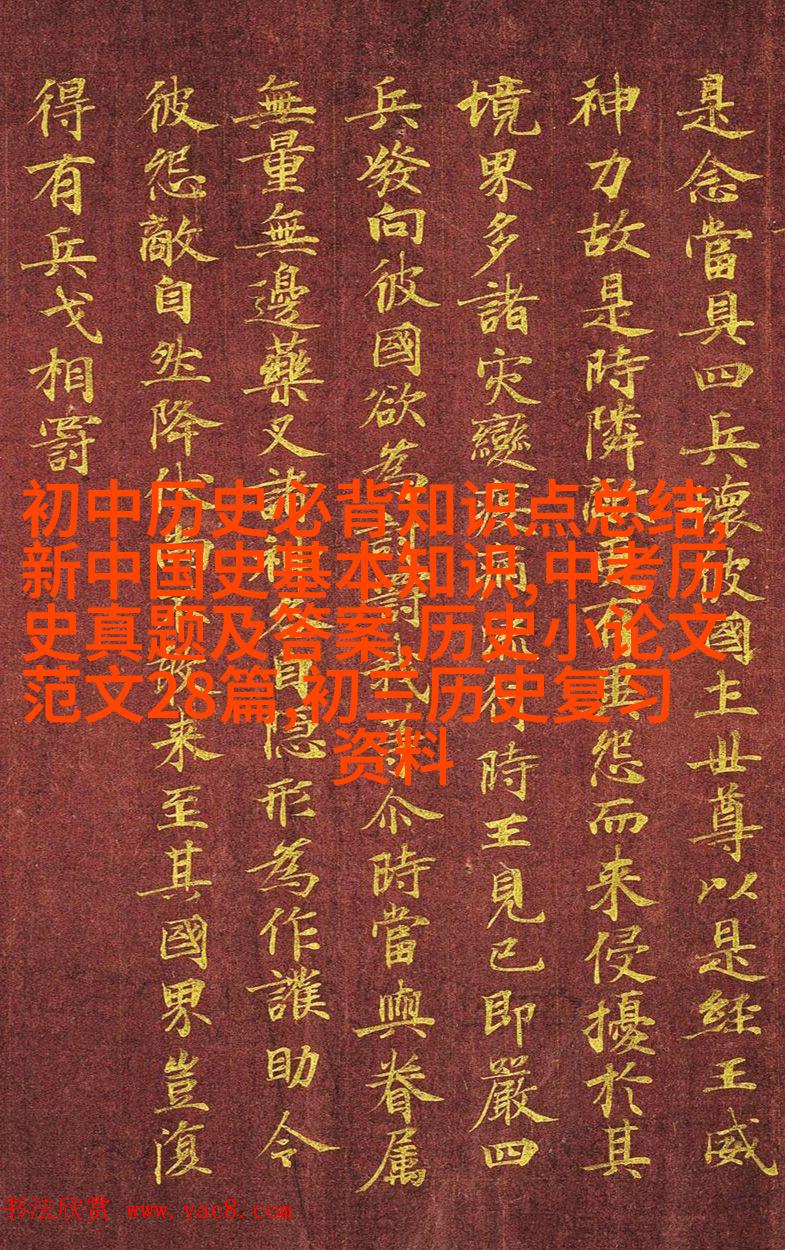 是念當具四兵壞彼國土世尊以是經王威
神力故是時隣敵更有異怨而来侵擾於其
境界多諸灾變疫病流行時王見已即嚴四
兵發向彼國欲為討罸我等尒時當與眷属
無量無邊藥叉諸神各自隱形為作護助令
彼怨敵自然降伏尚不敢来至其國界豈復
得有兵戈相罸
初中历史必背知识点总结,
新中国史基本知识,中考历
史真题及答案,历史小论文
范文28篇,初三历史复习
资料
书法欣赏 www.yac8.com